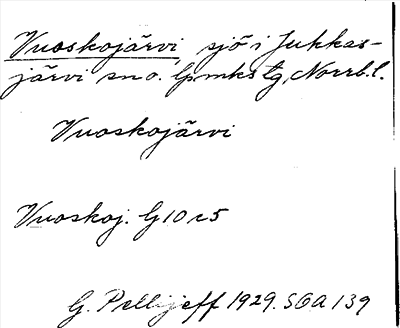 Vuoskojärvi, sjö i Jukkas-
järvi sn o. lpmkstg, Norrb. l.
Vuoskojärvi
Vuoskoj. G 10 c 5
G. Pellijeff 1929. SOA 139